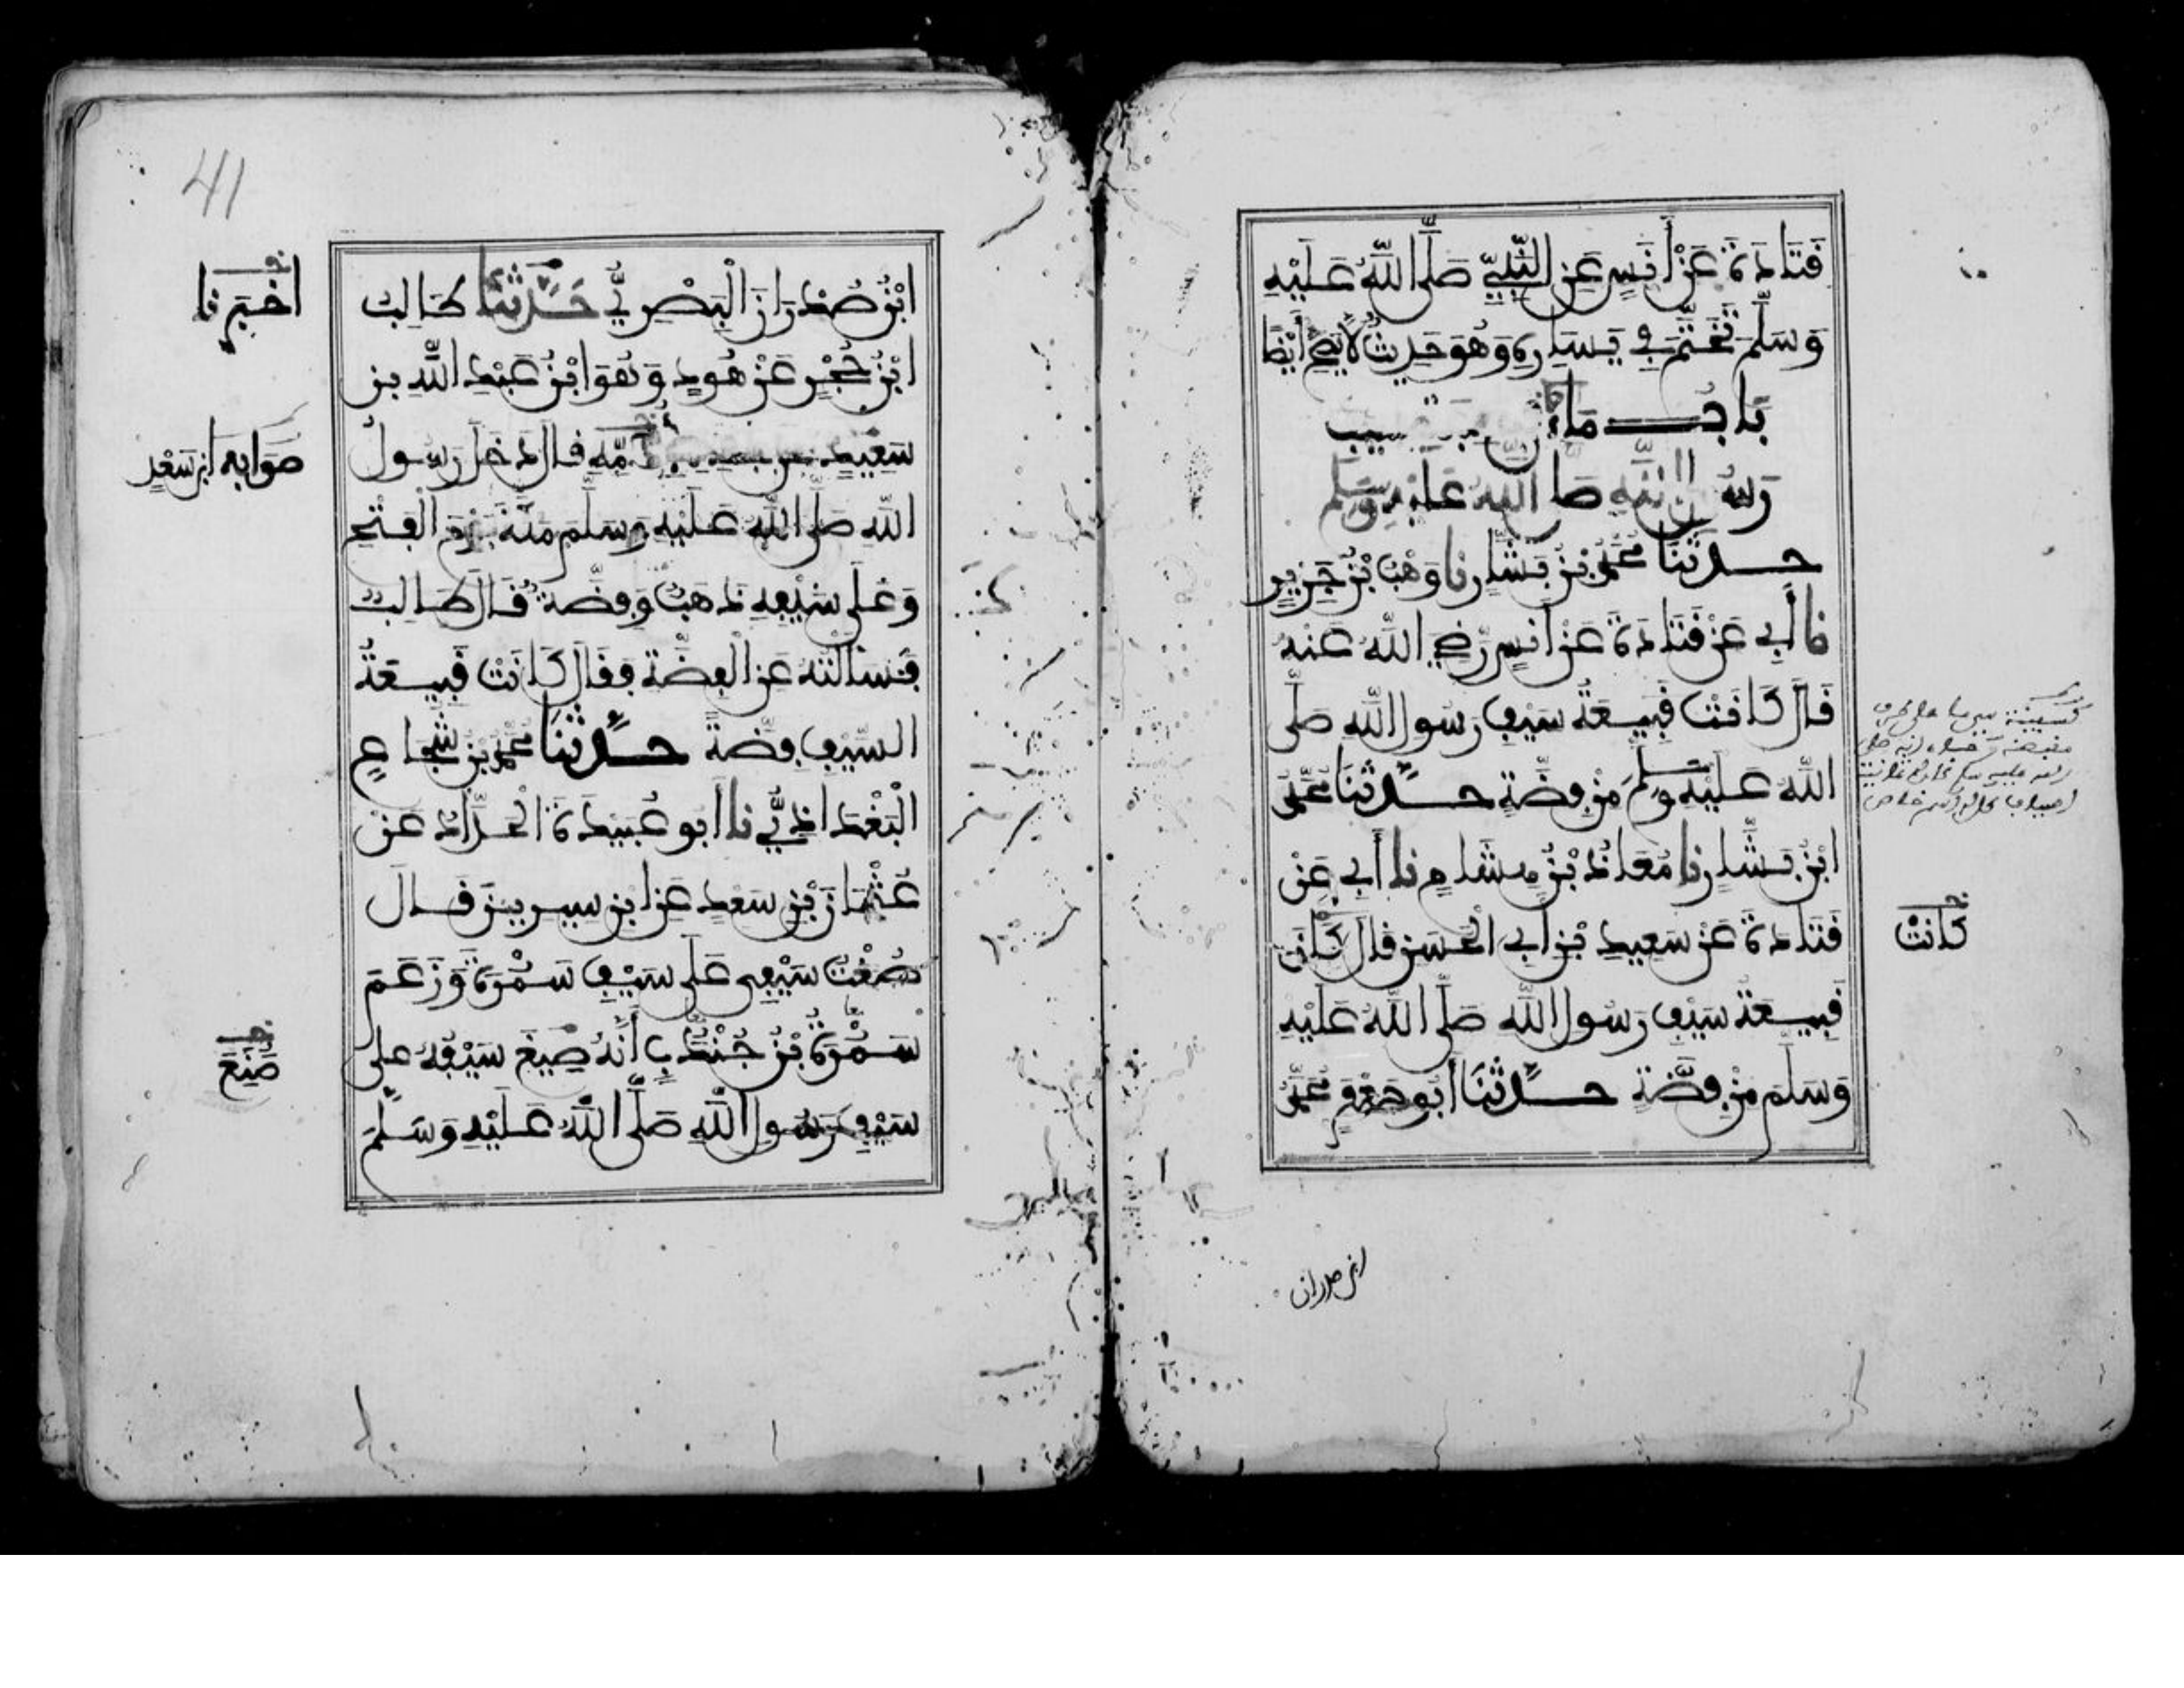 قَتَادَةَ عَنْ أَنَسٍ عَنِ النَّبِيِّ صَلَّى اللَّهُ عَلَيْهِ
وَسَلَّمَ تَخَتَّمَ فِي يَسَارِهِ وَهُوَ حَدِيثٌ لَا يَصِحُّ أَيْضًا
بَابُ مَا جَاءَ
رَسُولِ اللَّهِ صَلَّى اللَّهُ عَلَيْهِ وَسَلَّمَ
حَدَّثَنَا مُحَمَّدُ بْنُ بَشَّارٍ نا وَهْبُ بْنُ جَرِيرٍ
نا أَبِي عَنْ قَتَادَةَ عَنْ أَنَسٍ رَضِيَ اللَّهُ عَنْهُ
قَالَ كَانَتْ قَبِيعَةُ سَيْفِ رَسُولِ اللَّهِ صَلَّى
اللَّهُ عَلَيْهِ وَسَلَّمَ مِنْ فِضَّةٍ حَدَّثَنَا مُحَمَّدُ
ابْنُ بَشَّارٍ نا مُعَاذُ بْنُ هِشَامٍ نا أَبِي عَنْ
قَتَادَةَ عَنْ سَعِيدِ بْنِ أَبِي الْحَسَنِ قَالَ كَانَ
كَانَتْ
قَبِيعَةُ سَيْفِ رَسُولِ اللَّهِ صَلَّى اللَّهُ عَلَيْهِ
وَسَلَّمَ مِنْ فِضَّةٍ حَدَّثَنَا أَبُو جَعْفَرٍ مُحَمَّدُ
ابن صدران
41
ابْنُ صُدْرَانَ الْبَصْرِيُّ حَدَّثَنَا طَالِبُ
أخبرنا
ابْنُ حُجَيْرٍ عَنْ هُودٍ وَهُوَ ابْنُ عَبْدِ اللَّهِ بن
سَعِيدٍ عن جده لأمه قال دَخَلَ رَسُولُ
صَوَابه ابن سَعْدٍ
اللَّهِ صَلَّى اللَّهُ عَلَيْهِ وَسَلَّمَ مَكَّةَ يَوْمَ الْفَتْحِ
وَعَلَى سَيْفِهِ ذَهَبٌ وَفِضَّةٌ قَالَ طَالِبٌ
فَسَأَلْتُهُ عَنِ الْفِضَّةِ فَقَالَ كَانَتْ قَبِيعَةُ
السَّيْفِ فِضَّةً حَدَّثَنَا مُحَمَّدُ بْنُ شُجَاعٍ
الْبَغْدَاذِيُّ نا أَبُو عُبَيْدَةَ الْحَدَّادُ عَنْ
عُثْمَانَ بْنِ سَعْدٍ عَنِ ابْنِ سِيرِينَ قَالَ
صُغْتُ سَيْفِي عَلَى سَيْفِ سَمُرَةَ وَزَعَمَ
سَمُرَةُ بْنُ جُنْدَبٍ أَنَّهُ صِيغَ سَيْفُهُ عَلَى
صُنِعَ
سَيْفِ رَسُولِ اللَّهِ صَلَّى اللَّهُ عَلَيْهِ وَسَلَّمَ